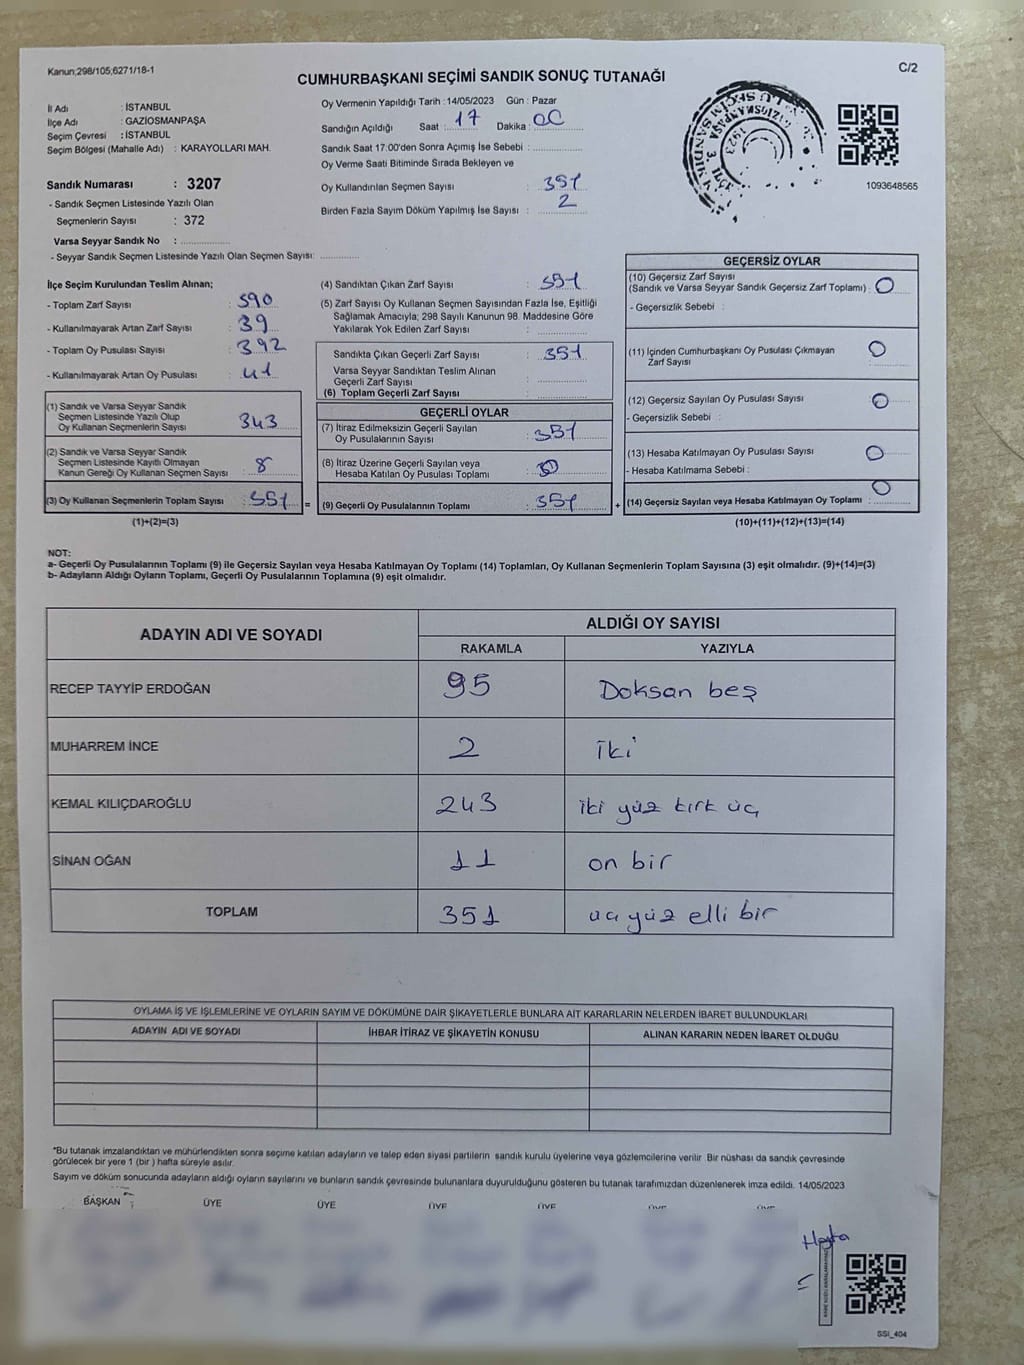 Kanun;298/105;6271/18-1
C/2
CUMHURBAŞKANI SEÇİMİ SANDIK SONUÇ TUTANAĞI
İl Adı : İSTANBUL
İlçe Adı : GAZİOSMANPAŞA
Seçim Çevresi : İSTANBUL
Seçim Bölgesi (Mahalle Adı) : KARAYOLLARI MAH.
Sandık Numarası : 3207
- Sandık Seçmen Listesinde Yazılı Olan
Seçmenlerin Sayısı : 372
Varsa Seyyar Sandık No :
- Seyyar Sandık Seçmen Listesinde Yazılı Olan Seçmen Sayısı:
Oy Vermenin Yapıldığı Tarih : 14/05/2023 Gün : Pazar
Sandığın Açıldığı Saat : 17 Dakika : 00
Sandık Saat 17:00'den Sonra Açımış İse Sebebi :
Oy Verme Saati Bitiminde Sırada Bekleyen ve
Oy Kullandırılan Seçmen Sayısı : 351
Birden Fazla Sayım Döküm Yapılmış İse Sayısı : 2
1093648565
İlçe Seçim Kurulundan Teslim Alınan;
- Toplam Zarf Sayısı : 390
- Kullanılmayarak Artan Zarf Sayısı : 39
- Toplam Oy Pusulası Sayısı : 392
- Kullanılmayarak Artan Oy Pusulası : 41
(1) Sandık ve Varsa Seyyar Sandık
Seçmen Listesinde Yazılı Olup
Oy Kullanan Seçmenlerin Sayısı 343
(2) Sandık ve Varsa Seyyar Sandık
Seçmen Listesinde Kayıtlı Olmayan
Kanun Gereği Oy Kullanan Seçmen Sayısı 8
(3) Oy Kullanan Seçmenlerin Toplam Sayısı : 351 =
(1)+(2)=(3)
(4) Sandıktan Çıkan Zarf Sayısı : 351
(5) Zarf Sayısı Oy Kullanan Seçmen Sayısından Fazla İse, Eşitliği
Sağlamak Amacıyla; 298 Sayılı Kanunun 98. Maddesine Göre
Yakılarak Yok Edilen Zarf Sayısı :
Sandıkta Çıkan Geçerli Zarf Sayısı : 351
Varsa Seyyar Sandıktan Teslim Alınan
Geçerli Zarf Sayısı :
(6) Toplam Geçerli Zarf Sayısı :
GEÇERLİ OYLAR
(7) İtiraz Edilmeksizin Geçerli Sayılan
Oy Pusulalarının Sayısı : 351
(8) İtiraz Üzerine Geçerli Sayılan veya
Hesaba Katılan Oy Pusulası Toplamı :
(9) Geçerli Oy Pusulalarının Toplamı : 351 +
GEÇERSİZ OYLAR
(10) Geçersiz Zarf Sayısı
(Sandık ve Varsa Seyyar Sandık Geçersiz Zarf Toplamı) : 0
- Geçersizlik Sebebi :
(11) İçinden Cumhurbaşkanı Oy Pusulası Çıkmayan
Zarf Sayısı : 0
(12) Geçersiz Sayılan Oy Pusulası Sayısı : 0
- Geçersizlik Sebebi :
(13) Hesaba Katılmayan Oy Pusulası Sayısı : 0
- Hesaba Katılmama Sebebi :
(14) Geçersiz Sayılan veya Hesaba Katılmayan Oy Toplamı : 0
(10)+(11)+(12)+(13)=(14)
NOT:
a- Geçerli Oy Pusulalarının Toplamı (9) ile Geçersiz Sayılan veya Hesaba Katılmayan Oy Toplamı (14) Toplamları, Oy Kullanan Seçmenlerin Toplam Sayısına (3) eşit olmalıdır. (9)+(14)=(3)
b- Adayların Aldığı Oyların Toplamı, Geçerli Oy Pusulalarının Toplamına (9) eşit olmalıdır.
ADAYIN ADI VE SOYADI ALDIĞI OY SAYISI
RAKAMLA YAZIYLA
RECEP TAYYİP ERDOĞAN 95 Doksan beş
MUHARREM İNCE 2 iki
KEMAL KILIÇDAROĞLU 243 iki yüz kırk üç
SİNAN OĞAN 11 on bir
TOPLAM 351 üç yüz elli bir
OYLAMA İŞ VE İŞLEMLERİNE VE OYLARIN SAYIM VE DÖKÜMÜNE DAİR ŞİKAYETLERLE BUNLARA AİT KARARLARIN NELERDEN İBARET BULUNDUKLARI
ADAYIN ADI VE SOYADI İHBAR İTİRAZ VE ŞİKAYETİN KONUSU ALINAN KARARIN NEDEN İBARET OLDUĞU
*Bu tutanak imzalandıktan ve mühürlendikten sonra seçime katılan adayların ve talep eden siyasi partilerin sandık kurulu üyelerine veya gözlemcilerine verilir. Bir nüshası da sandık çevresinde
görülecek bir yere 1 (bir ) hafta süreyle asılır.
Sayım ve döküm sonucunda adayların aldığı oyların sayılarını ve bunların sandık çevresinde bulunanlara duyurulduğunu gösteren bu tutanak tarafımızdan düzenlenerek imza edildi. 14/05/2023
BAŞKAN ÜYE ÜYE ÜYE ÜYE ÜYE ÜYE
SSI_404